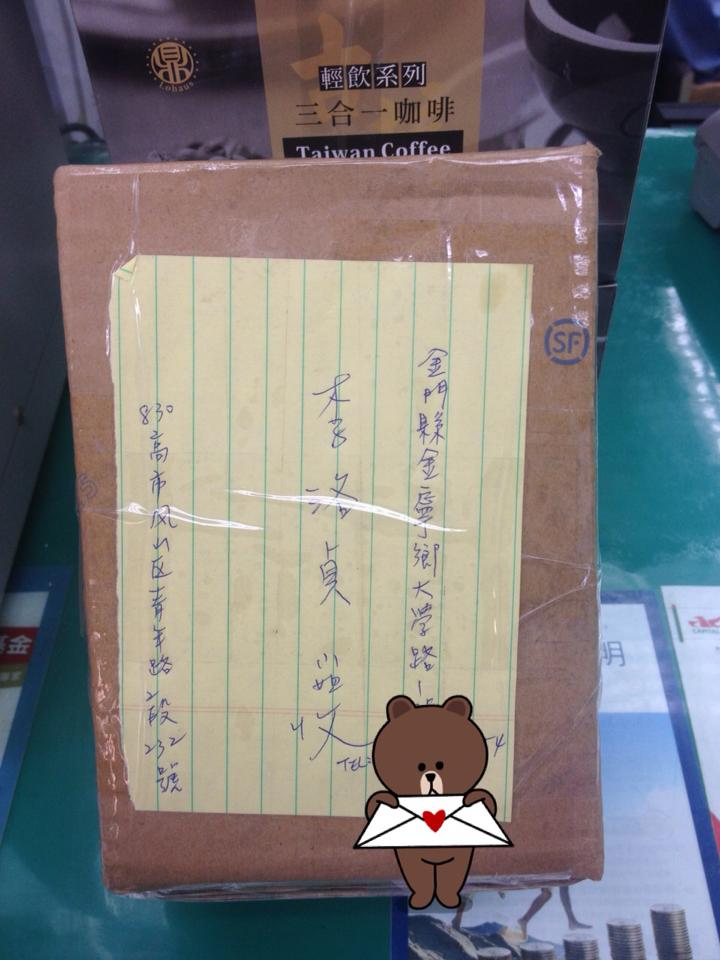 鼎
Lohaus
輕飲系列
三合一咖啡
Taiwan Coffee
SF
金門縣金寧鄉大學路1
李洺貞 小姐 收
TEL:
830高市凤山区青年路2段232號
基金
明